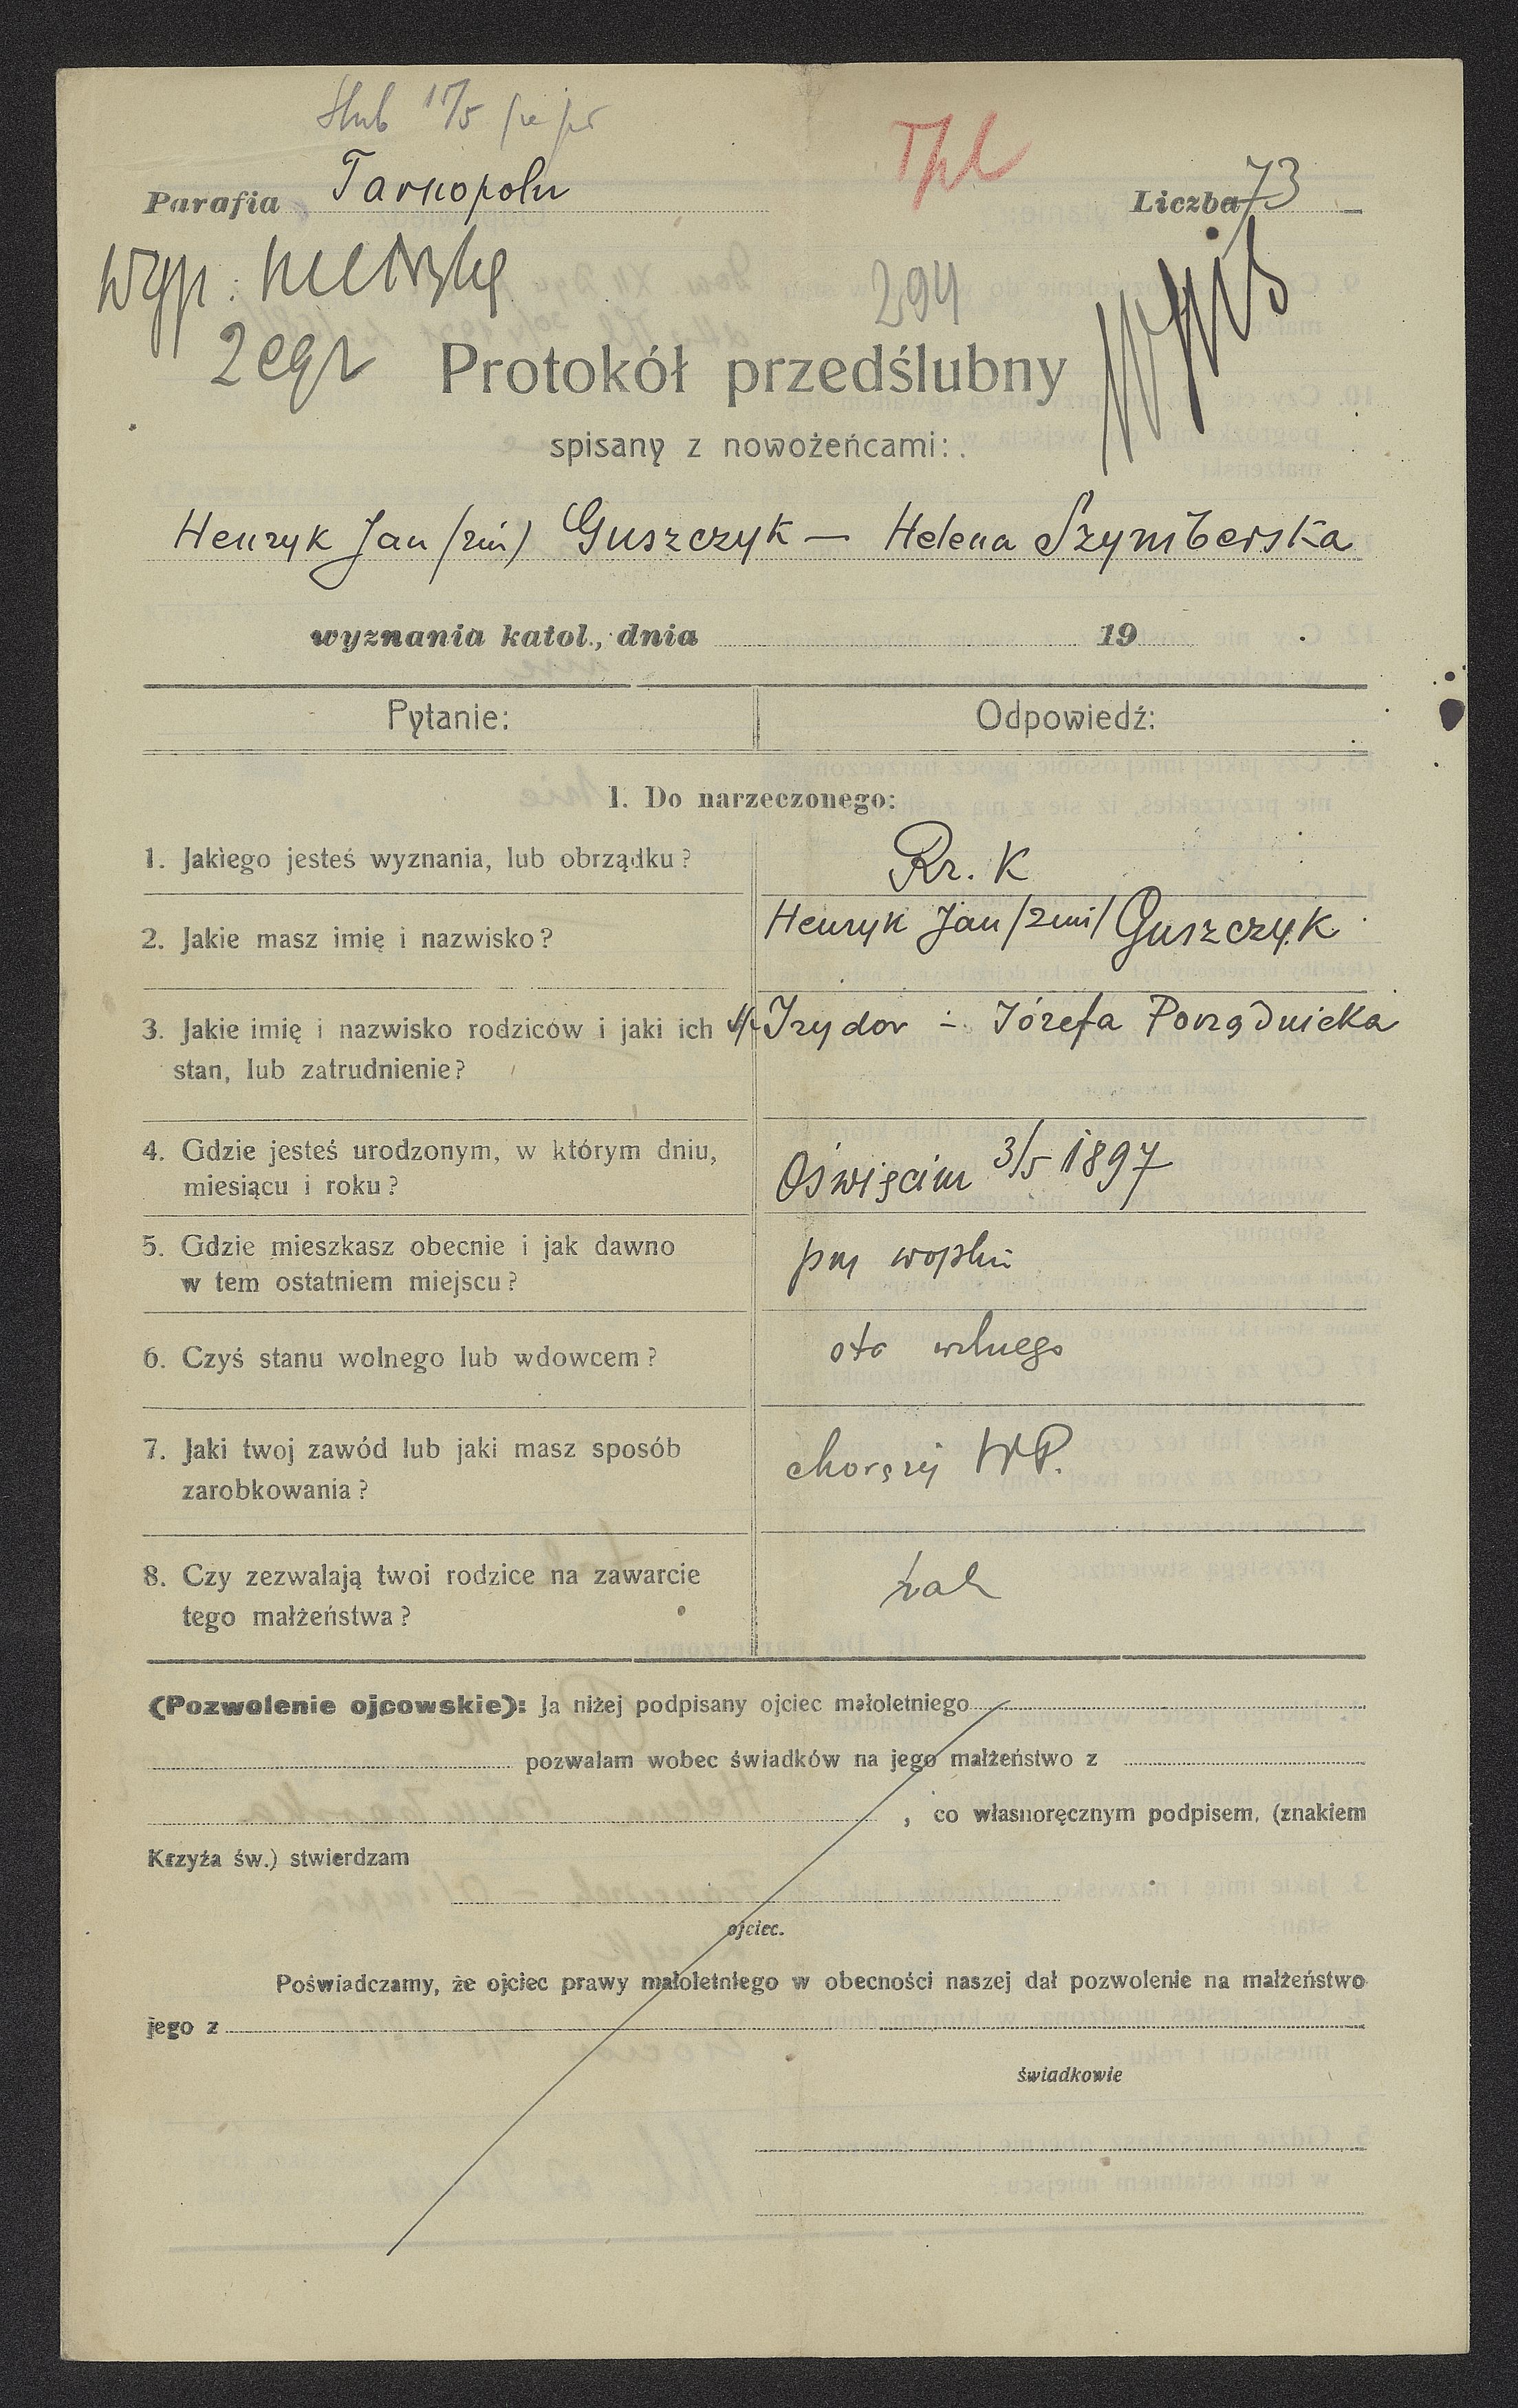 Ślub 17/5
Tpl
Parafia Tarnopolu
Liczba 73
Wyp. metrykę
294
Wypis
2 egz
Protokół przedślubny
spisany z nowożeńcami:
Henryk Jan /2im/ Guszczyk — Helena Szymberska
wyznania katol., dnia 19
Pytanie: Odpowiedź:
1. Do narzeczonego:
1. Jakiego jesteś wyznania, lub obrządku? Rz. K
2. Jakie masz imię i nazwisko? Henryk Jan /2im/ Guszczyk
3. Jakie imię i nazwisko rodziców i jaki ich Izydor – Józefa Porządnicka
stan, lub zatrudnienie?
4. Gdzie jesteś urodzonym, w którym dniu,
miesiącu i roku? Oświęcim 3/5 1897
5. Gdzie mieszkasz obecnie i jak dawno
w tem ostatniem miejscu?
6. Czyś stanu wolnego lub wdowcem? wolnego
7. Jaki twoj zawód lub jaki masz sposób
zarobkowania? chorąży WP.
8. Czy zezwalają twoi rodzice na zawarcie
tego małżeństwa? tak
(Pozwolenie ojcowskie): Ja niżej podpisany ojciec małoletniego
pozwalam wobec świadków na jego małżeństwo z
, co własnoręcznym podpisem, (znakiem
Krzyża św.) stwierdzam
ojciec.
Poświadczamy, że ojciec prawy małoletniego w obecności naszej dał pozwolenie na małżeństwo
jego z
świadkowie